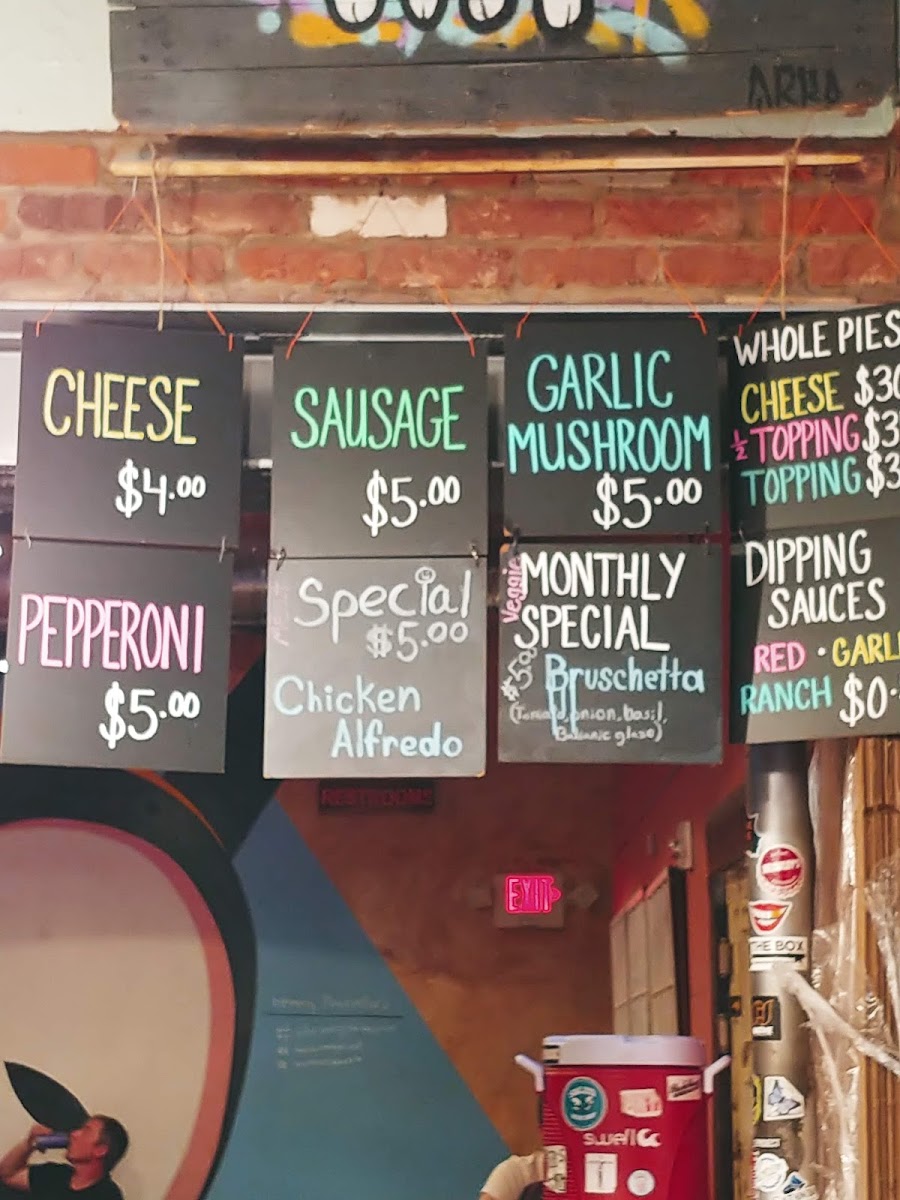 ARKA
CHEESE
$4.00
PEPPERONI
$5.00
SAUSAGE
$5.00
Special
$5.00
Chicken
Alfredo
GARLIC
MUSHROOM
$5.00
Veggie
MONTHLY
SPECIAL
$5.00
Bruschetta
(Tomato, onion, basil,
Balsamic glaze)
WHOLE PIES
CHEESE $30
½ TOPPING $3
TOPPING $3
DIPPING
SAUCES
RED · GARL
RANCH $0.
RESTROOMS
EXIT
THE BOX
swell